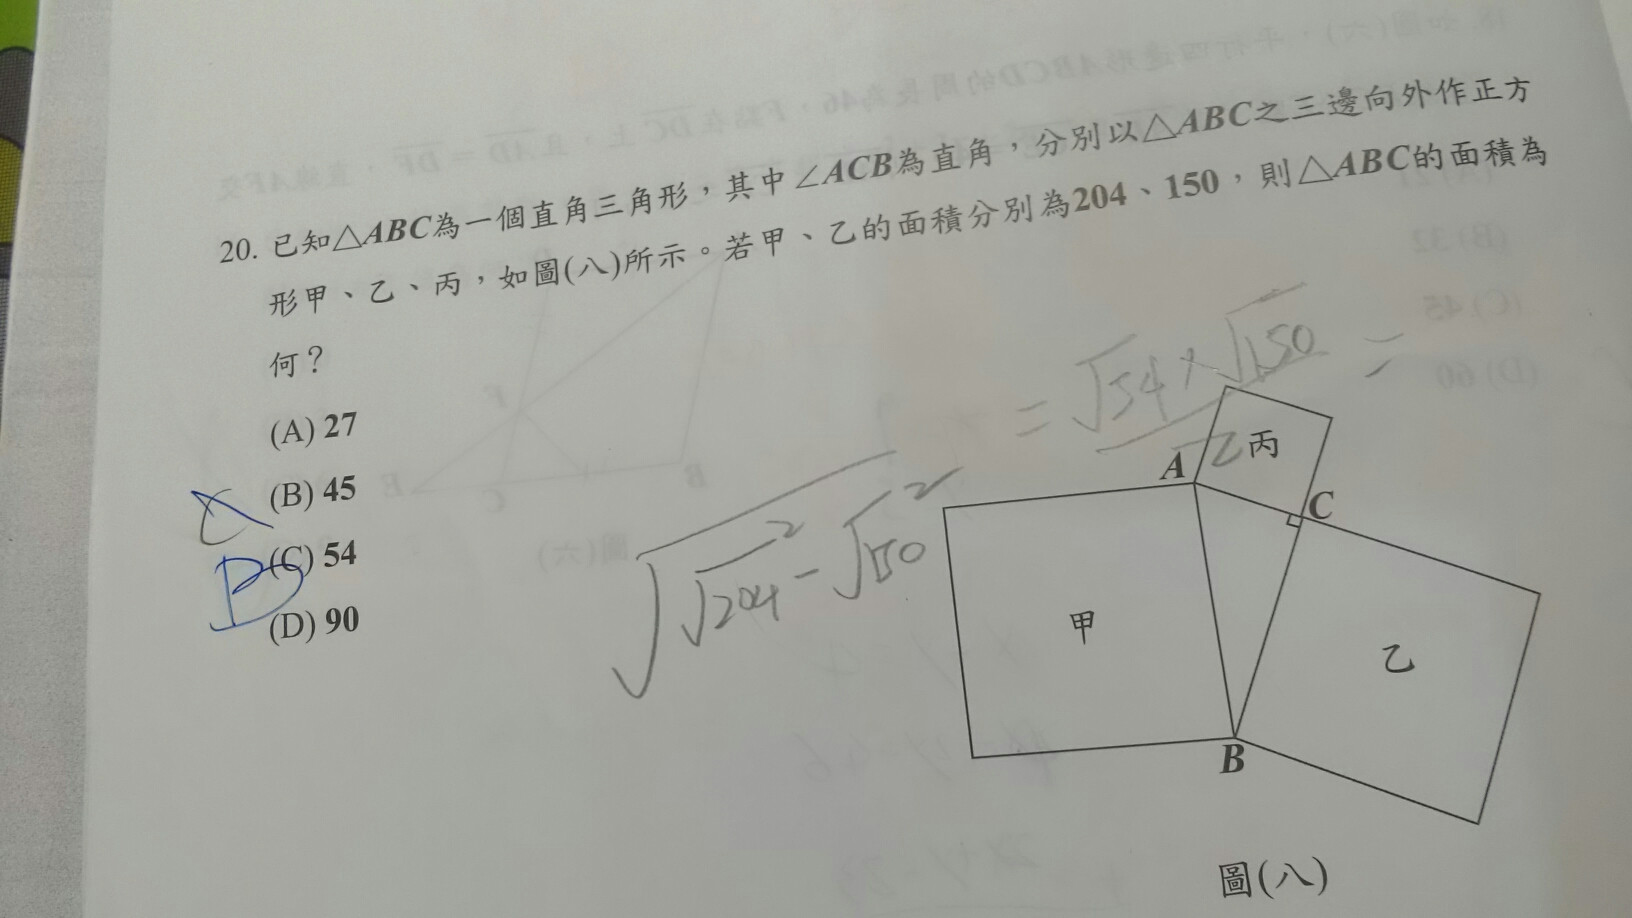 20. 已知△ABC為一個直角三角形，其中∠ACB為直角，分別以△ABC之三邊向外作正方
形甲、乙、丙，如圖(八)所示。若甲、乙的面積分別為204、150，則△ABC的面積為
何？
(A) 27
(B) 45
(C) 54
(D) 90
C
B
√(√204² - √150²)
= √54 × √150 / 2 =
丙
A
C
甲
乙
B
圖(八)